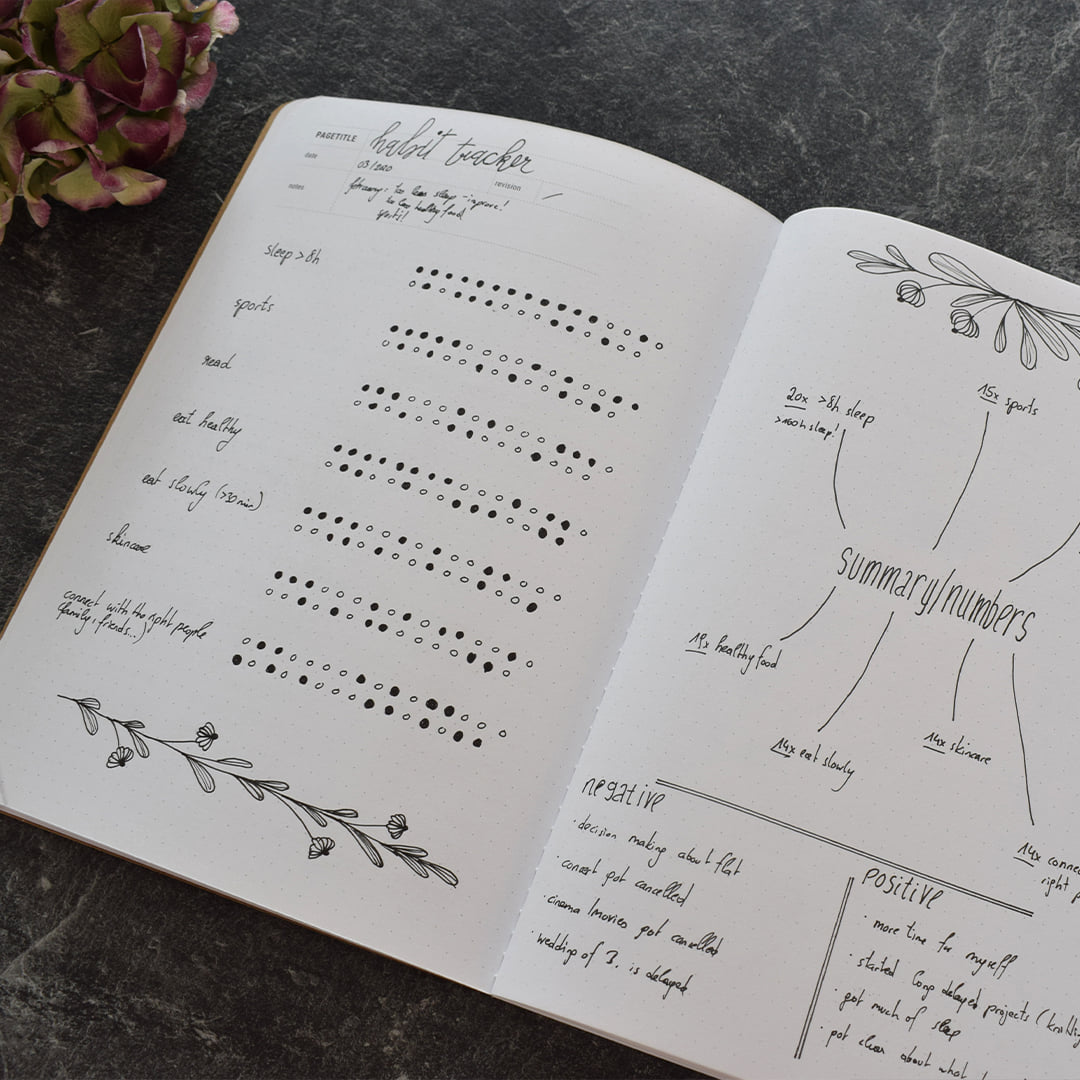 PAGETITLE habit tracker
date 03/2020 revision /
notes february: to less sleep - improve!
to less healthy food
sports!
sleep >8h
sports
read
eat healthy
eat slowly (>30min)
skincare
connect with the right people
(family, friends..)
20x >8h sleep
>160h sleep!
15x sports
summary/numbers
19x healthy food
14x eat slowly
14x skincare
14x connec
right p
negative
· decision making about flat
· concert got cancelled
· cinema / movies got cancelled
· wedding of J. is delayed
positive
· more time for myself
· started long delayed projects (
· got much of sleep
· got clear about what